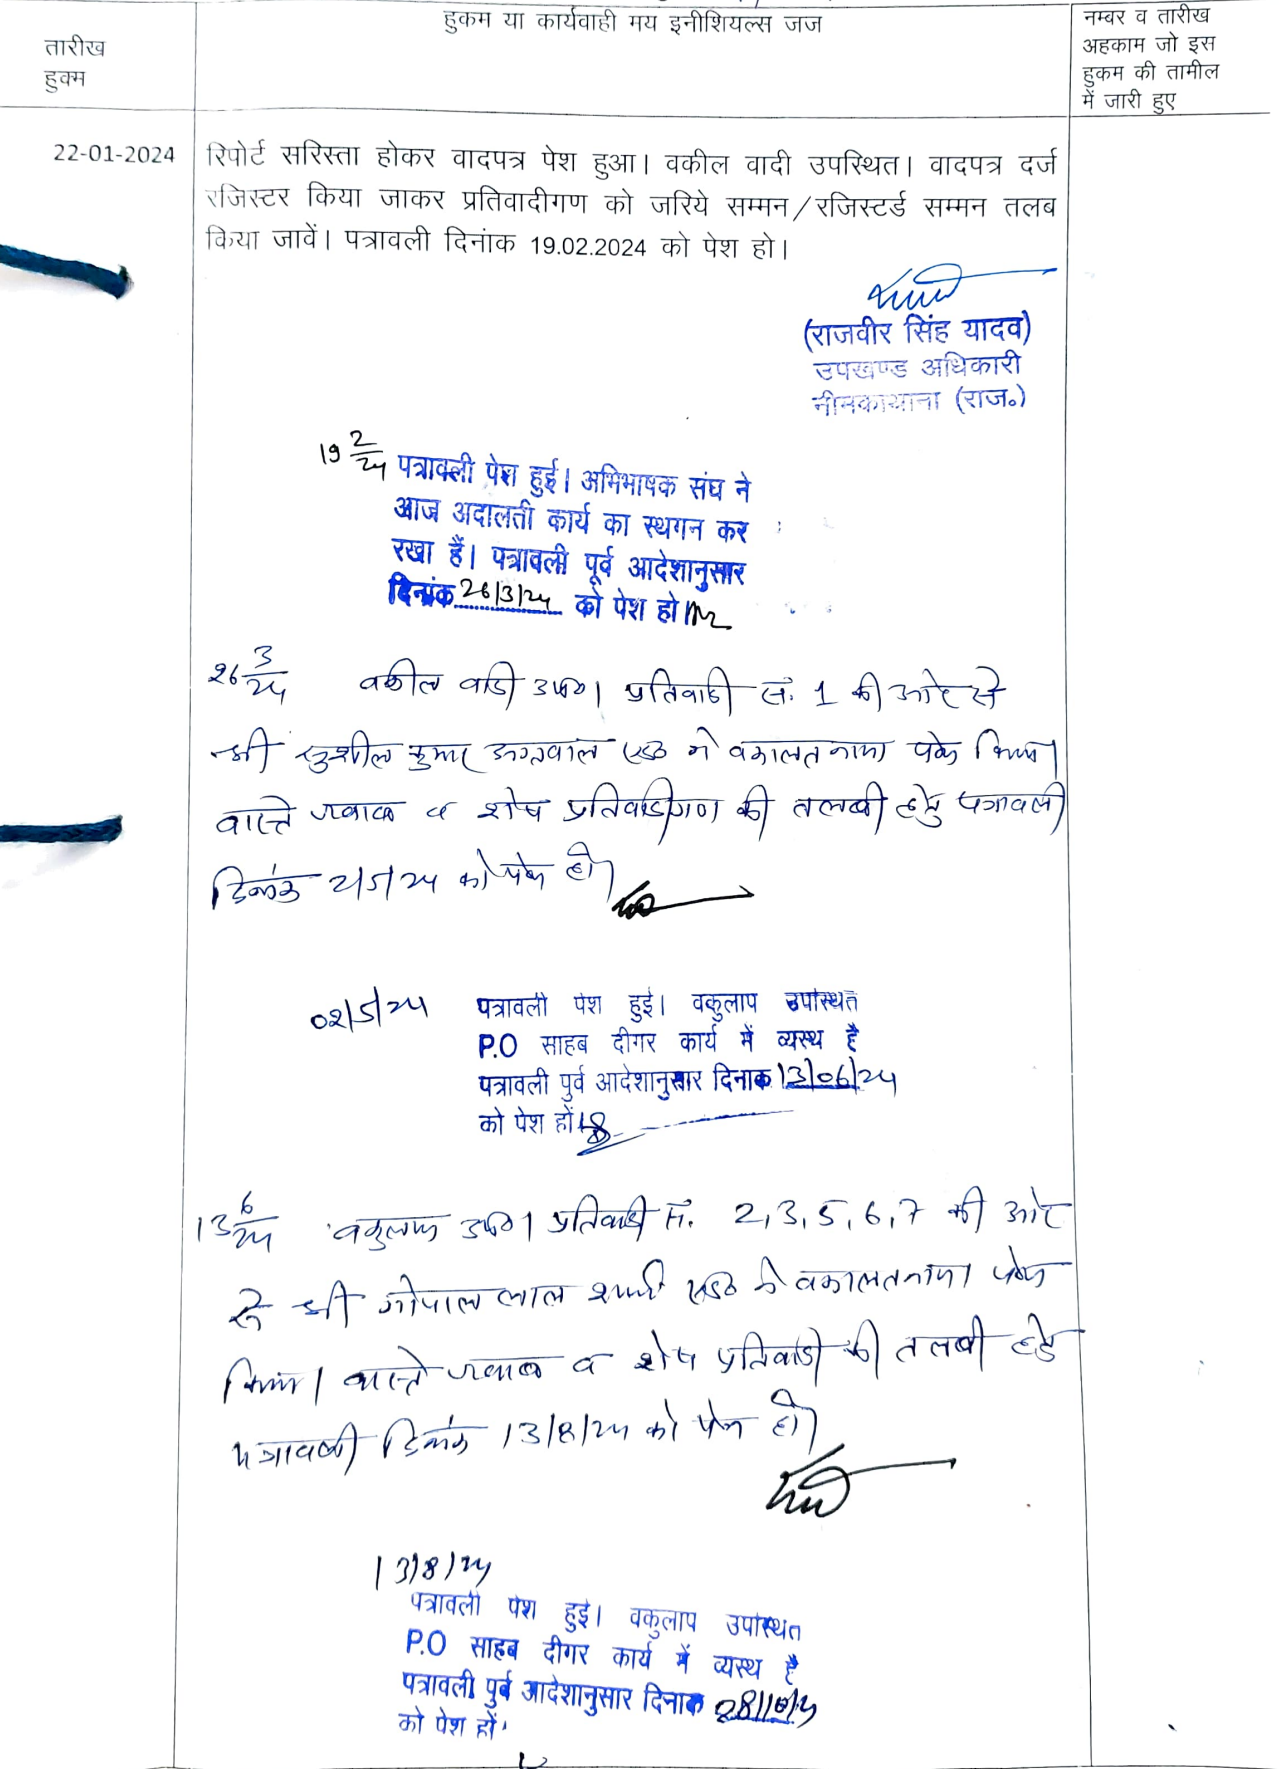 हुकम या कार्यवाही मय इनीशियल्स जज
तारीख
हुक्म
नम्बर व तारीख
अहकाम जो इस
हुकम की तामील
में जारी हुए
22-01-2024
रिपोर्ट सरिस्ता होकर वादपत्र पेश हुआ। वकील वादी उपस्थित। वादपत्र दर्ज
रजिस्टर किया जाकर प्रतिवादीगण को जरिये सम्मन/रजिस्टर्ड सम्मन तलब
किया जावें। पत्रावली दिनांक 19.02.2024 को पेश हो।
(राजवीर सिंह यादव)
उपखण्ड अधिकारी
नीमकाथाना (राज०)
19 2/24 पत्रावली पेश हुई। अभिभाषक संघ ने
आज अदालती कार्य का स्थगन कर
रखा हैं। पत्रावली पूर्व आदेशानुसार
दिनांक 26/3/24 को पेश हो
26 3/24 वकील वादी उप०। प्रतिवादी सं. 1 की ओर से
श्री सुशील कुमार अग्रवाल एड० ने वकालतनामा पेश किया।
वास्ते जवाब व शेष प्रतिवादीगण की तलबी हेतु पत्रावली
दिनांक 2/5/24 को पेश हो।
02/5/24 पत्रावली पेश हुई। वकुलाप उपस्थित
P.O साहब दीगर कार्य में व्यस्थ है
पत्रावली पुर्व आदेशानुसार दिनाक 13/06/24
को पेश हों
13 6/24 वकुलाप उप०। प्रतिवादी सं. 2,3,5,6,7 की ओर
से श्री गोपाल लाल शर्मा एड० ने वकालतनामा पेश
किया। वास्ते जवाब व शेष प्रतिवादी की तलबी हेतु
पत्रावली दिनांक 13/8/24 को पेश हो।
13/8/24
पत्रावली पेश हुई। वकुलाप उपस्थित
P.O साहब दीगर कार्य में व्यस्थ है
पत्रावली पुर्व आदेशानुसार दिनाक 28/10/24
को पेश हों